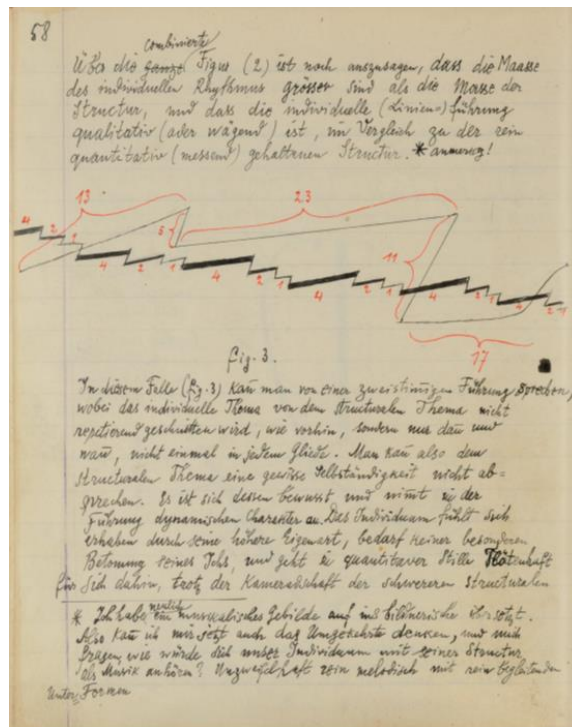 58
combinierte
Über die ganze Figur (2) ist noch auszusagen, dass die Maasse
des individuellen Rhythmus grösser sind als die Masse der
Structur, und dass die individuelle (Linien-) führung
qualitativ (oder wägend) ist, im Vergleich zu der rein
quantitativ (messend) gehaltenen Structur. * anmerkg!
13 23
4 2 1 6 11
4 2 1 4 2 1 4 2 1 4 2 1 4 2 1
17
fig. 3.
In diesem Falle (fig. 3) kañ man von einer zweistimmigen Führung sprechen,
wobei das individuelle Thema von dem structuralen Thema nicht
repetierend geschnitten wird, wie vorhin, sondern nur dañ und
wañ, nicht einmal in jedem Gliede. Man kañ also dem
structuralen Thema eine gewisse Selbständigkeit nicht ab=
sprechen. Es ist sich dessen bewusst und nimt in der
Führung dynamischen Charakter an. Das Individuum fühlt sich
erhaben durch seine höhere Eigenart, bedarf keiner besonderen
Betonung seines Ichs, und geht in quantitativer Stille flötenhaft
für sich dahin, trotz der Kameradschaft der schwereren structuralen
neulich
* Ich habe ein musikalisches Gebilde auf ins bildnerische übersetzt.
Also kañ ich mir jetzt auch das Umgekehrte denken, und mich
fragen, wie würde sich unser Individuum mit seiner Structur
als Musik anhören? Unzweifelhaft rein melodisch mit rein begleitenden
Unter Formen